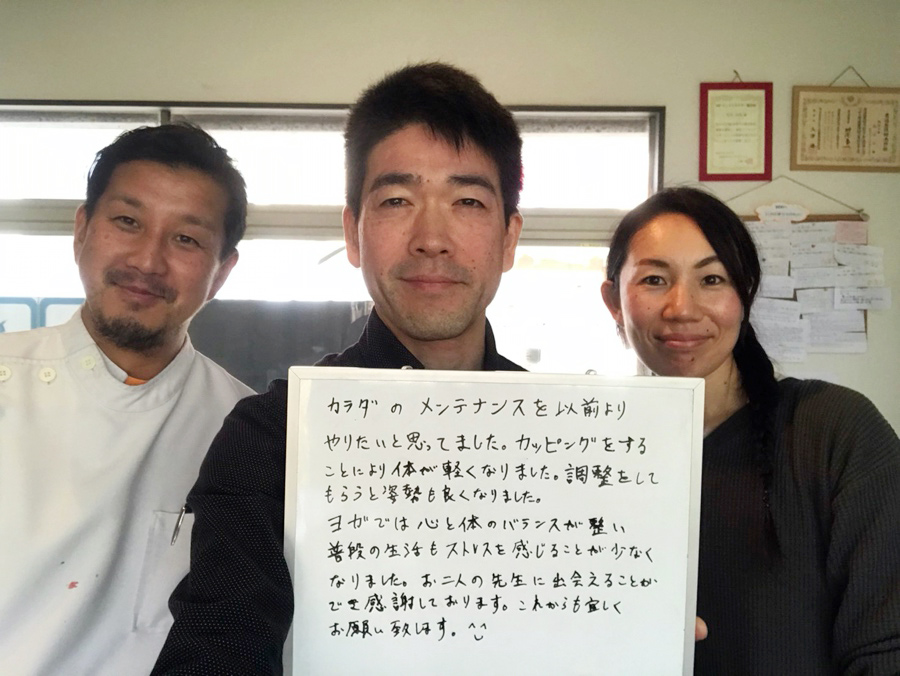 カラダの メンテナンスを以前より
やりたいと思ってました。カッピングをする
ことにより体が軽くなりました。調整をして
もらうと姿勢も良くなりました。
ヨガでは心と体のバランスが整い
普段の生活もストレスを感じることが少なく
なりました。お二人の先生に出会えることが
でき感謝しております。これからも宜しく
お願い致します。^^